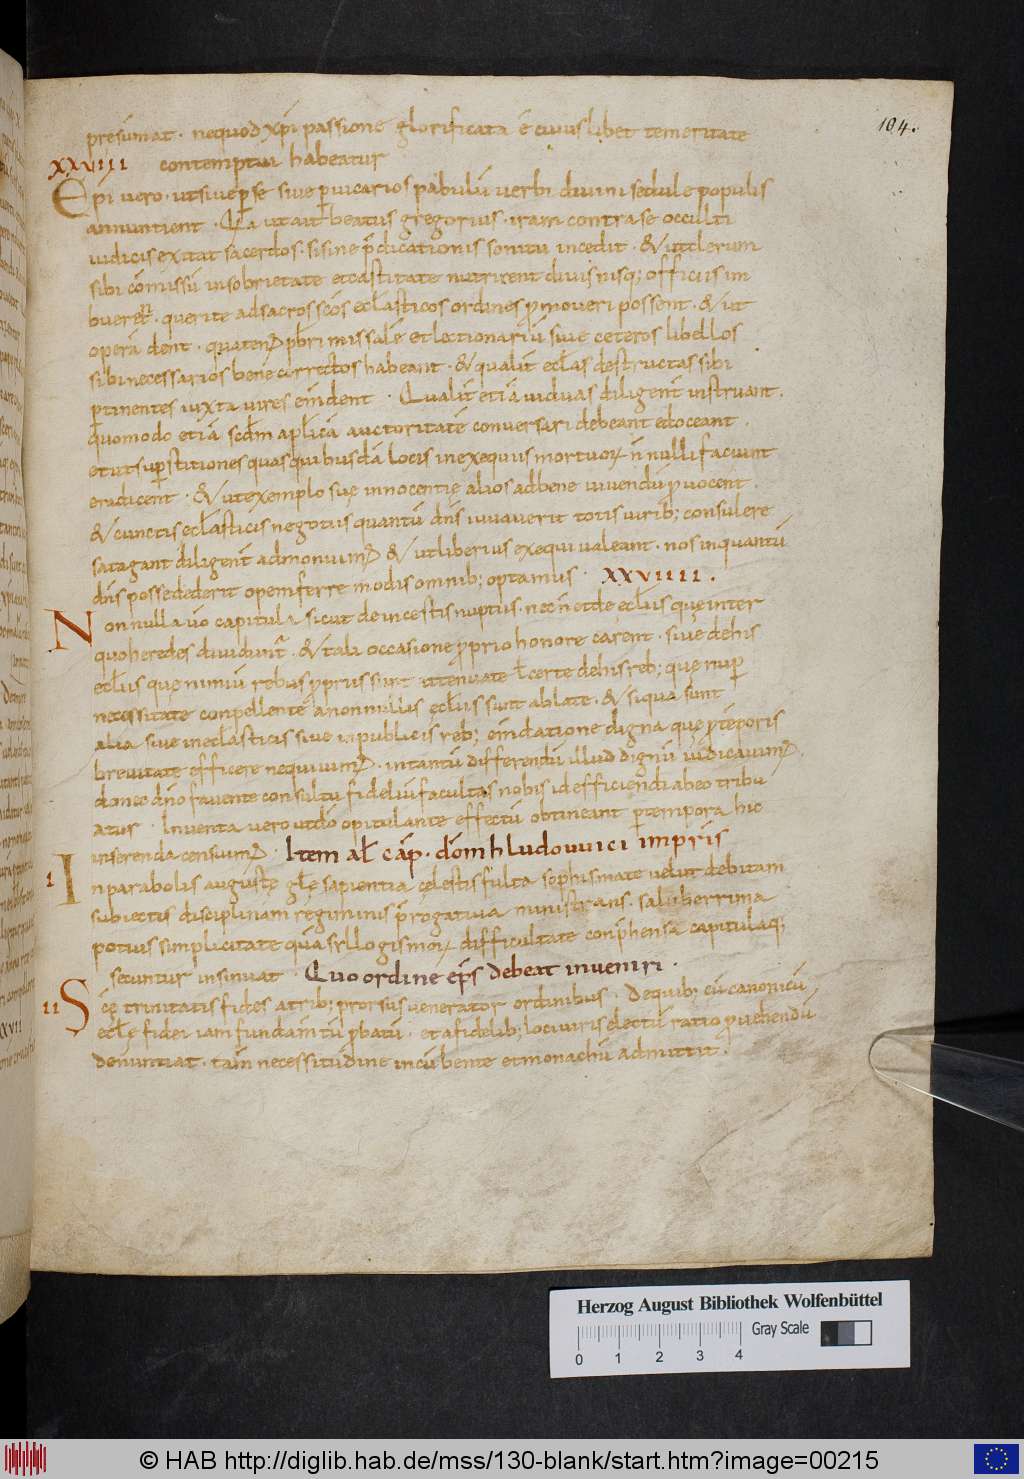 104.
presumat · nequod xp̄i passione glorificata ē cuiuslibet temeritate
XXVIII contemptui habeatur
Epī vero · ut sive p̄ se sive p̄ vicarios pabulū verbi divini sedule populis
annuntient · Quia ut ait beatus gregorius · iram contra se occulti
iudicis excitat sacerdos · si sine p̄dicationis sonitu incedit · & ut clerum
sibi cōmissū in sobrietate et castitate nutrirent divinisq; officiis im
buerēt · querite ad sacros scōs eccl̄asticos ordines p̄moveri possent · & ut
operā dent · quaten; pb̄ri missalē et lectionariū sive ceteros libellos
sibi necessarios bene correctos habeant · & qualit̄ eccl̄as destructas sibi
p̄tinentes iuxta vires em̄dent · Qualit̄ etiā viduas diligent̄ instruant ·
quomodo etiā scdm̄ apl̄icā auctoritatē conversari debeant edoceant ·
et ut sup̄stitiones quas quibusdā locis in exequiis mortuoꝝ n̄nulli faciunt
eradicent · & ut exemplo suę innocentię alios ad bene vivendū p̄vocent ·
& cunctis eccl̄asticis negotiis quantū dn̄s iuvaverit totis virib; consulere
satagant diligent̄ admonuim; & ut liberius exequi valeant · nos inquantū
dn̄s posse dederit opem ferre modis omnib; optamus · XXVIIII ·
Nonnulla v̄o capitula sicut de incestis nuptiis · necn̄ et de eccl̄iis que inter
quoheredes dividunt̄ · & tali occasione p̄prio honore carent · sive de his
eccl̄iis quę nimiū rebus p̄priis sunt attenuate ł certe de his reb; quę nup̄
necessitate conpellente a nonnullis eccl̄iis sunt ablate · & siqua sunt
alia sive in eccl̄asticis sive in publicis reb; em̄datione digna que p̄ tēporis
brevitate efficere nequivim; · in tantū differendū illud dignū iudicavim;
donec dn̄o favente consultu fideliū facultas nobis id efficiendi ab eo tribu
atur · Inventa vero ut dō opitulante effectū obtineant p̄ tempora hic
inserenda censuim; · Item al̄ cap̄ · dom̄ hludouuici imp̄ris
I In parabolis augustę gl̄ę sapientia cęlestis fulta sophismate velut debitam
subiectis disciplinam regiminis p̄rogativa ministrans · saluberrima
potius simplicitate quā sillogismoꝝ difficultate conp̄hensa capitulaq;
secuntur insinuat · Quo ordine ep̄s debeat inveniri ·
II Scę trinitatis fides atrib; prorsus venerator ordinibus · De quib; cū canonicū
eccl̄ę fidei iam fundam̄tū p̄batū · et a fidelib; loci viris electū ratio p̄vehendū
denuntiat · tam̄ necessitudine incūbente et monachū admittit ·
Herzog August Bibliothek Wolfenbüttel
Gray Scale
0 1 2 3 4
© HAB http://diglib.hab.de/mss/130-blank/start.htm?image=00215